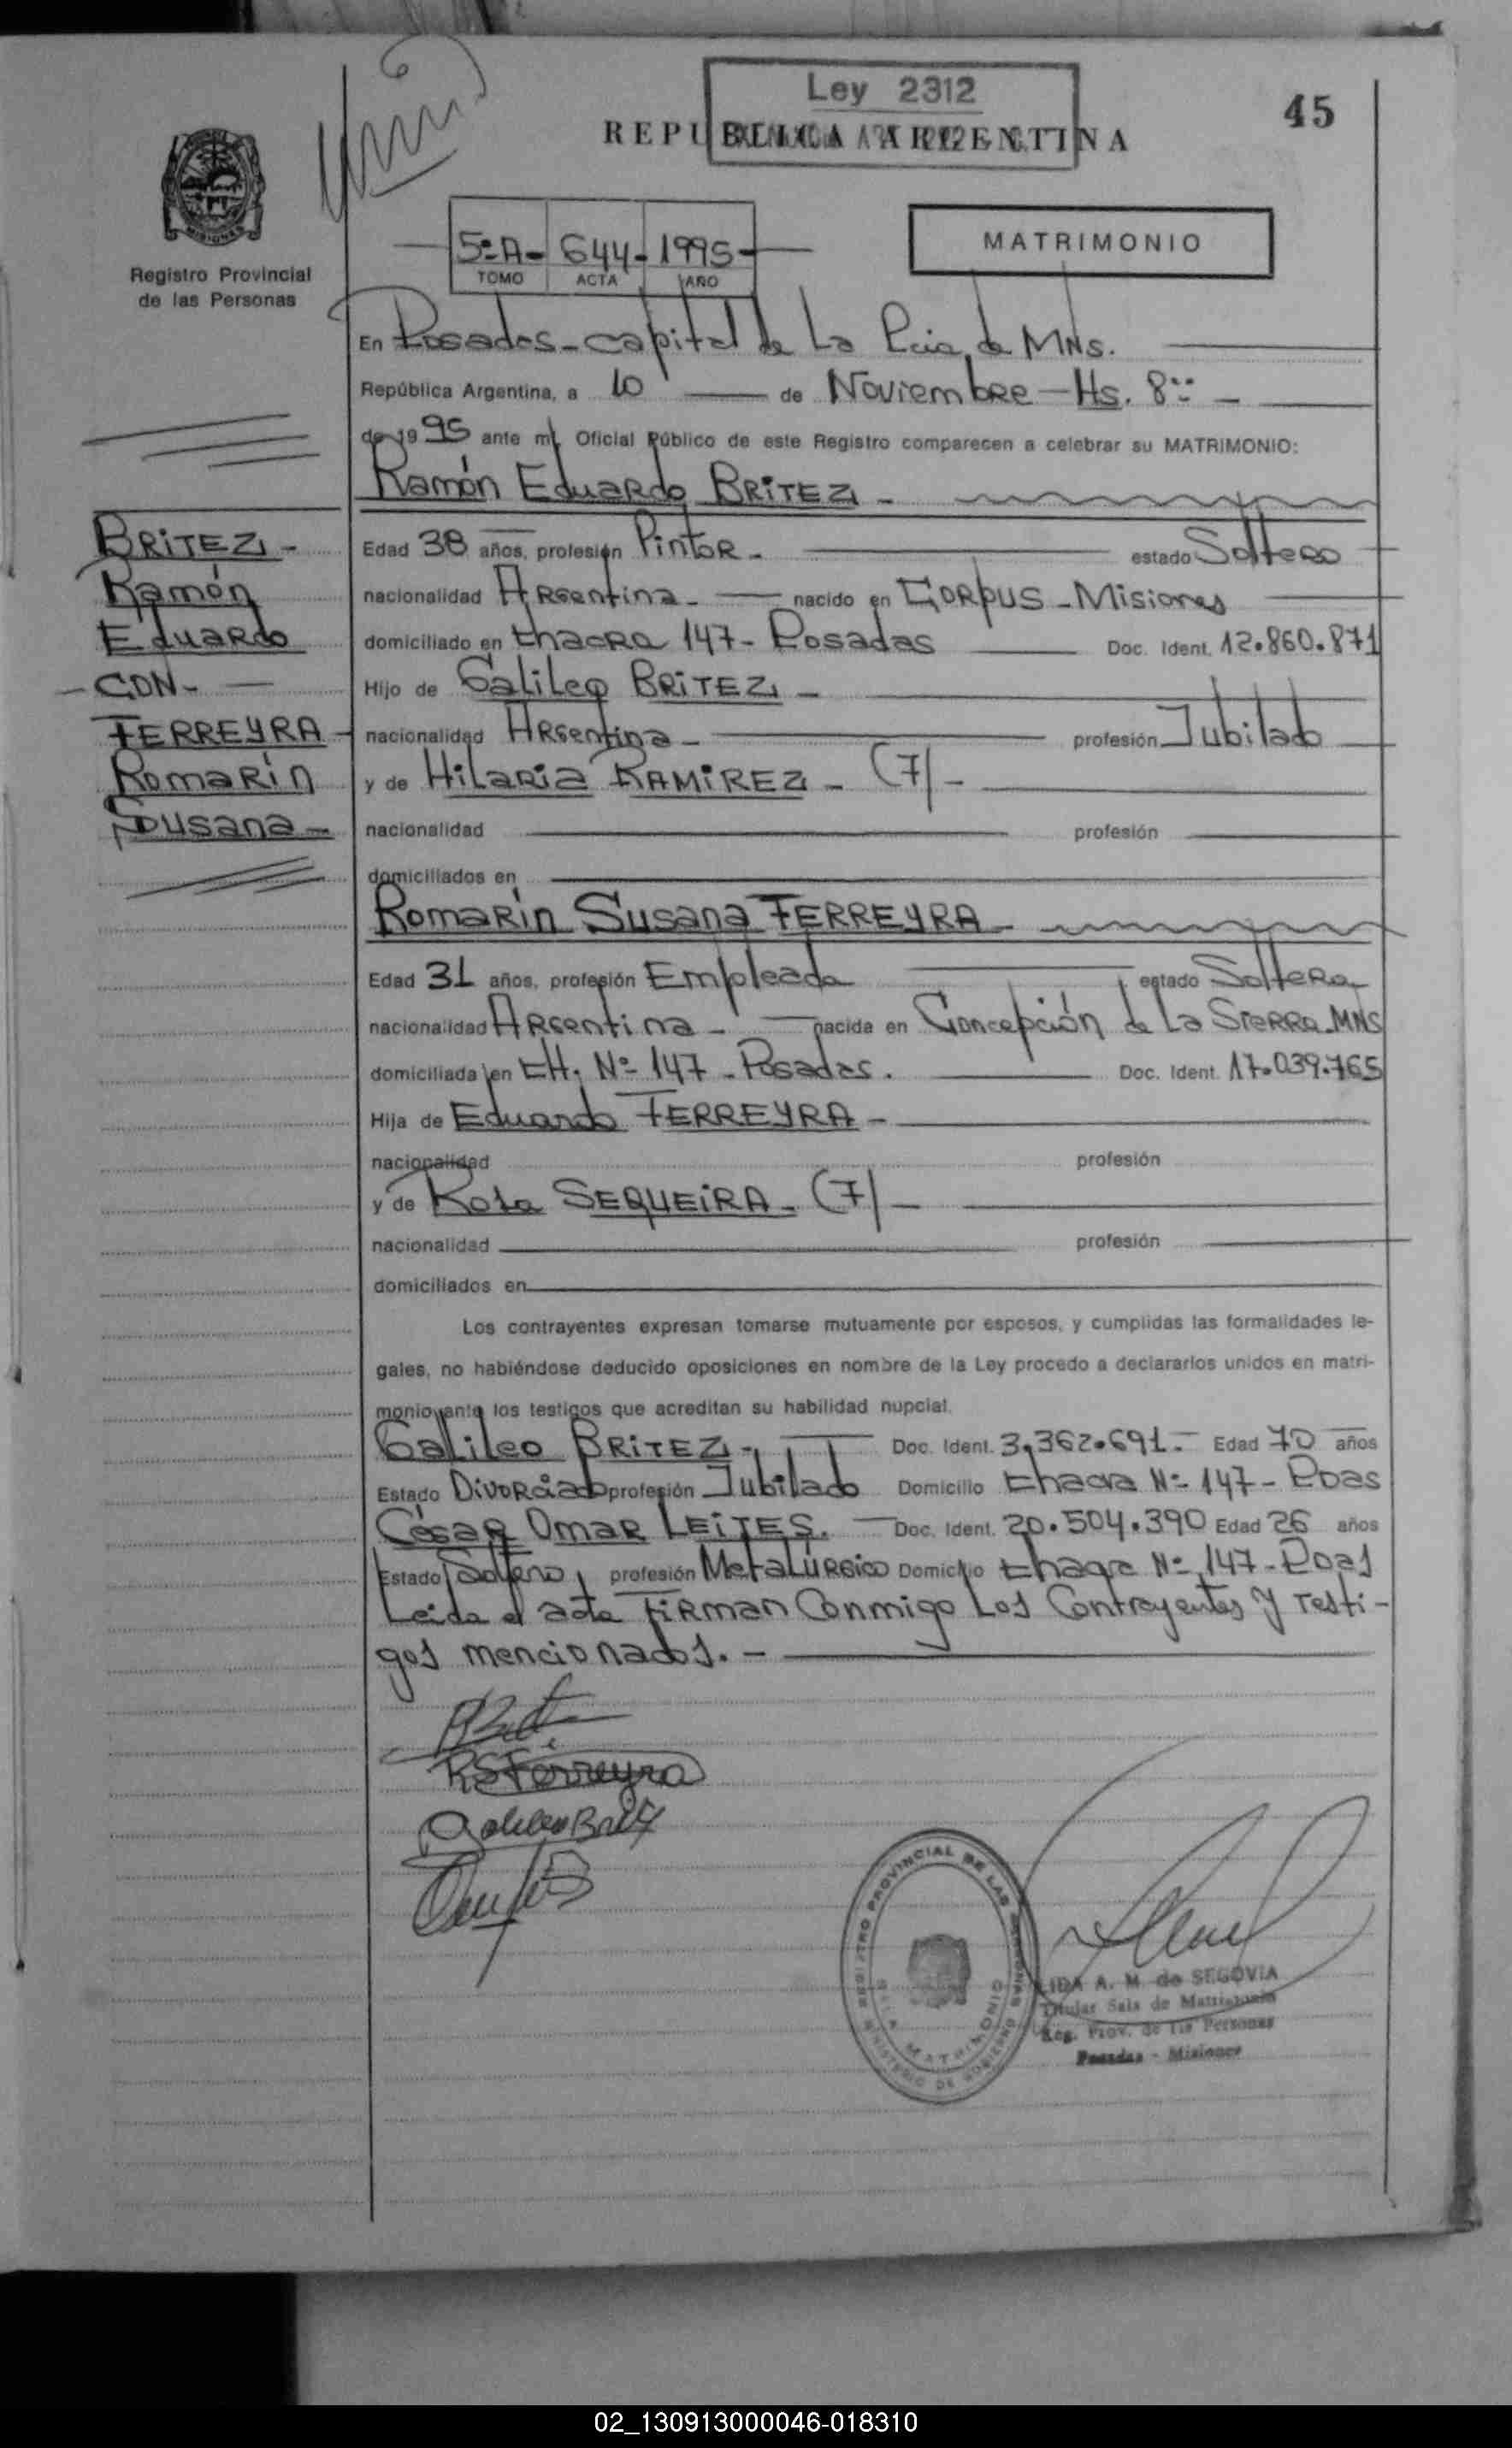 Ley 2312
REPUBLICA ARGENTINA
45
Registro Provincial
de las Personas
MISIONES
5º A - 644 - 1995 -
TOMO ACTA AÑO
MATRIMONIO
En Posadas - capital de La Pcia. de MNS.
República Argentina, a 10 de Noviembre - Hs. 8:
de 1995 ante mí, Oficial Público de este Registro comparecen a celebrar su MATRIMONIO:
Ramón Eduardo BRITEZ -
BRITEZ -
Ramón
Eduardo
- CON -
FERREYRA -
Romarin
Susana -
Edad 38 años, profesión Pintor - estado Soltero
nacionalidad Argentina - nacido en Corpus - Misiones
domiciliado en Chacra 147 - Posadas Doc. Ident. 12.860.871
Hijo de Galileo BRITEZ -
nacionalidad Argentina - profesión Jubilado
y de Hilaria RAMIREZ - (7) -
nacionalidad profesión
domiciliados en
Romarin Susana FERREYRA -
Edad 31 años, profesión Empleada estado Soltera
nacionalidad Argentina - nacida en Concepción de La Sierra - MNS
domiciliada en CH. Nº 147 - Posadas. Doc. Ident. 17.039.765
Hija de Eduardo FERREYRA -
nacionalidad profesión
y de Rosa SEQUEIRA - (7) -
nacionalidad profesión
domiciliados en
Los contrayentes expresan tomarse mutuamente por esposos, y cumplidas las formalidades le-
gales, no habiéndose deducido oposiciones en nombre de la Ley procedo a declararlos unidos en matri-
monio, ante los testigos que acreditan su habilidad nupcial.
Galileo BRITEZ - Doc. Ident. 3.362.691 - Edad 70 años
Estado Divorciado profesión Jubilado Domicilio Chacra Nº 147 - Pdas
César Omar LEITES. - Doc. Ident. 20.504.390 Edad 26 años
Estado Soltero, profesión Metalúrgico Domicilio Chacra Nº 147 - Pdas
Leida el acta Firman Conmigo Los Contrayentes y Testi-
gos mencionados. -
RSFerreyra
Galileo Britez
REGISTRO PROVINCIAL DE LAS PERSONAS
SALA MATRIMONIO
MINISTERIO DE GOBIERNO
LIDA A. M. de SEGOVIA
Titular Sala de Matrimonio
Reg. Prov. de las Personas
Posadas - Misiones
02_130913000046-018310